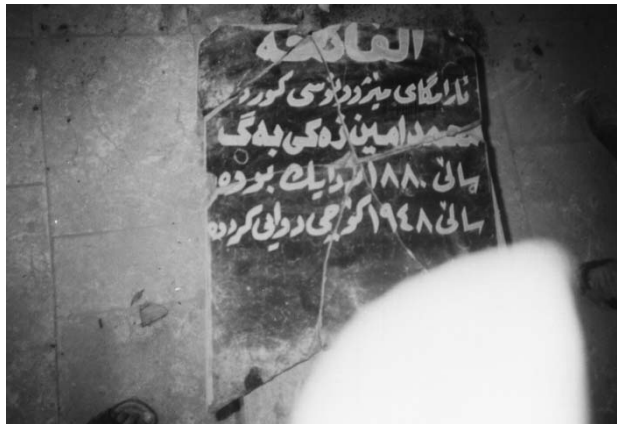 الفاتحة
ئارامگای میژوونوسی کورد
محمد امین زەکی بەگ
سالێ ١٨٨٠ لە دایك بووە
سالێ ١٩٤٨ کۆچی دوایی کردوە